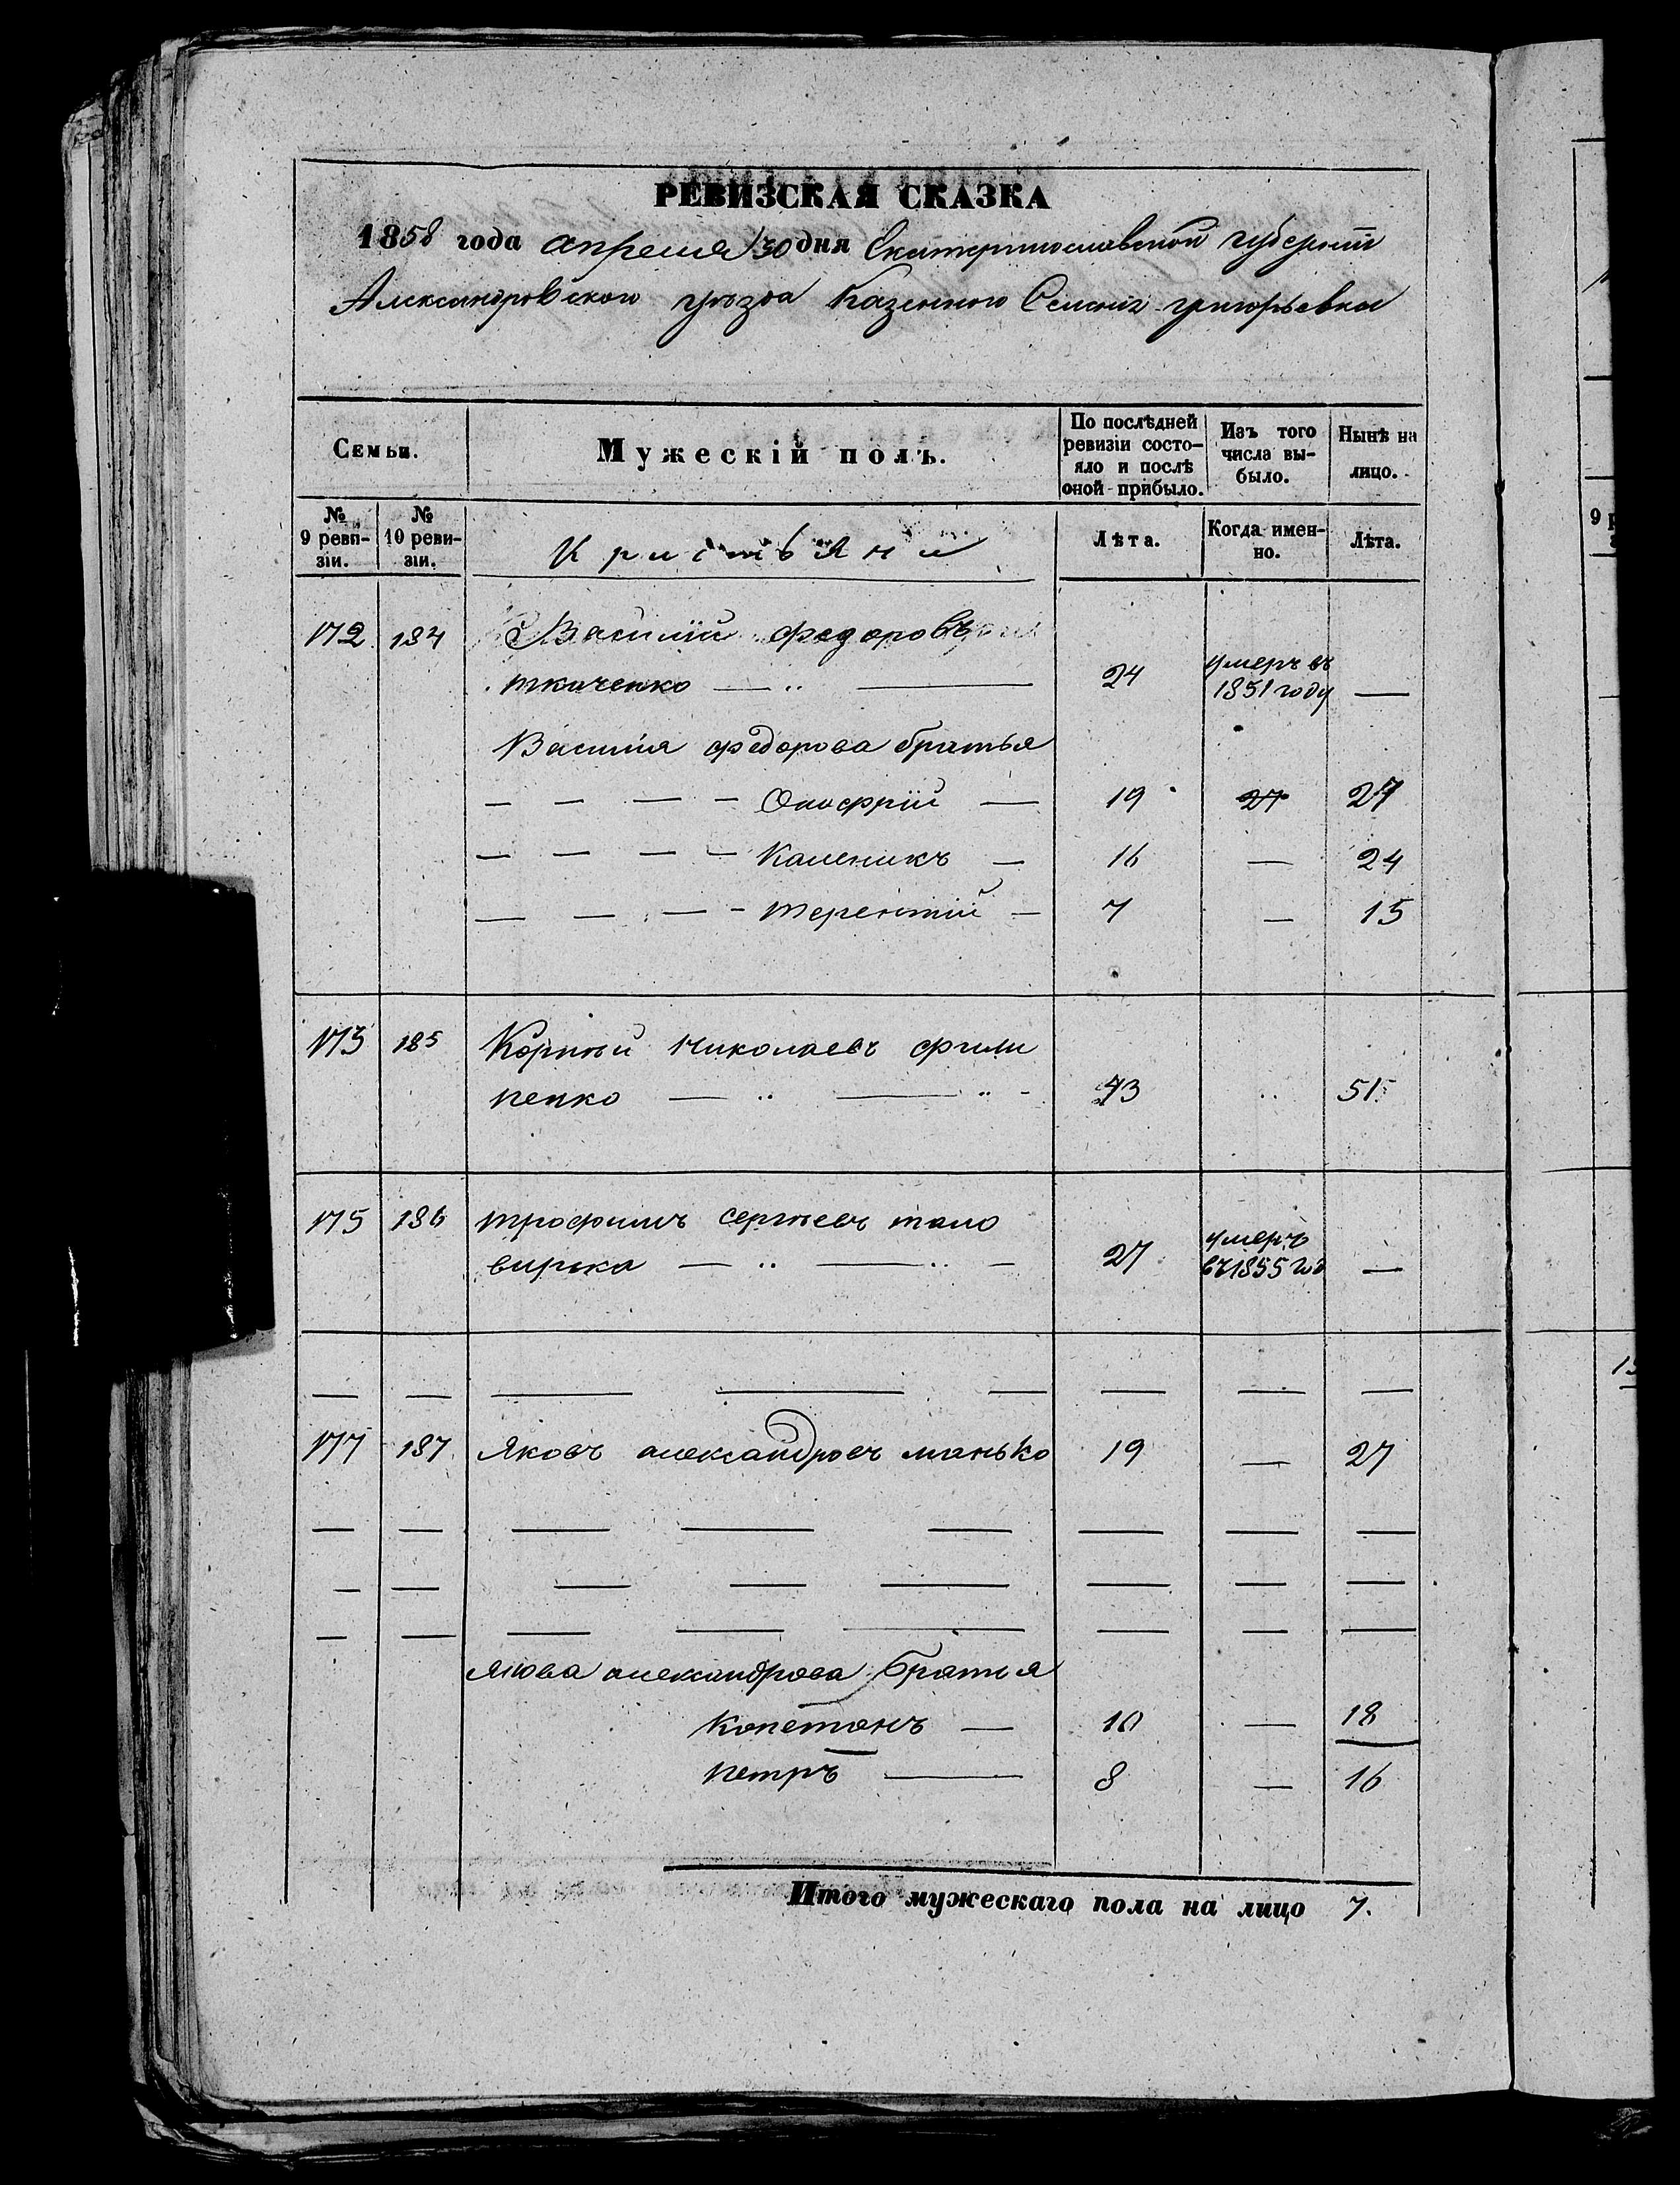 РЕВИЗСКАЯ СКАЗКА
1858 года апреля 30 дня Екатеринославской губернiи
Александровского уѣзда Казенного Селенiя григорьевки
Семьи.
Мужескiй полъ.
По послѣдней ревизiи состо-
яло и послѣ
оной прибыло.
Изъ того
числа вы-
было.
Нынѣ на
лицо.
№
9 реви-
зiи.
№
10 реви-
зiи.
Кристьяни
Лѣта.
Когда имен-
но.
Лѣта.
172 184 Василiй федоровъ
ткаченко — „ — 24 умеръ въ
1851 году —
Василiя федорова братья
— — — — Онофрiй — 19 27 27
— — — — Каленикъ — 16 — 24
— — — — терентiй — 7 — 15
173 185 Корнѣй николаевъ фили
пенко — „ — „ - 43 „ 51
175 186 трофимъ сергѣевъ тало
вирка — „ — „ — 27 умеръ
въ 1855 год —
177 187 Яковъ александровъ манько 19 — 27
Якова александрова братья
Капетонъ — 10 — 18
петръ — 8 — 16
Итого мужескаго пола на лицо 7.